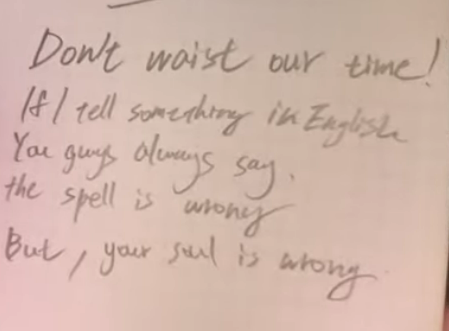 Don't waist our time!
If I tell something in English
You guys always say.
the spell is wrong
But, your soul is wrong